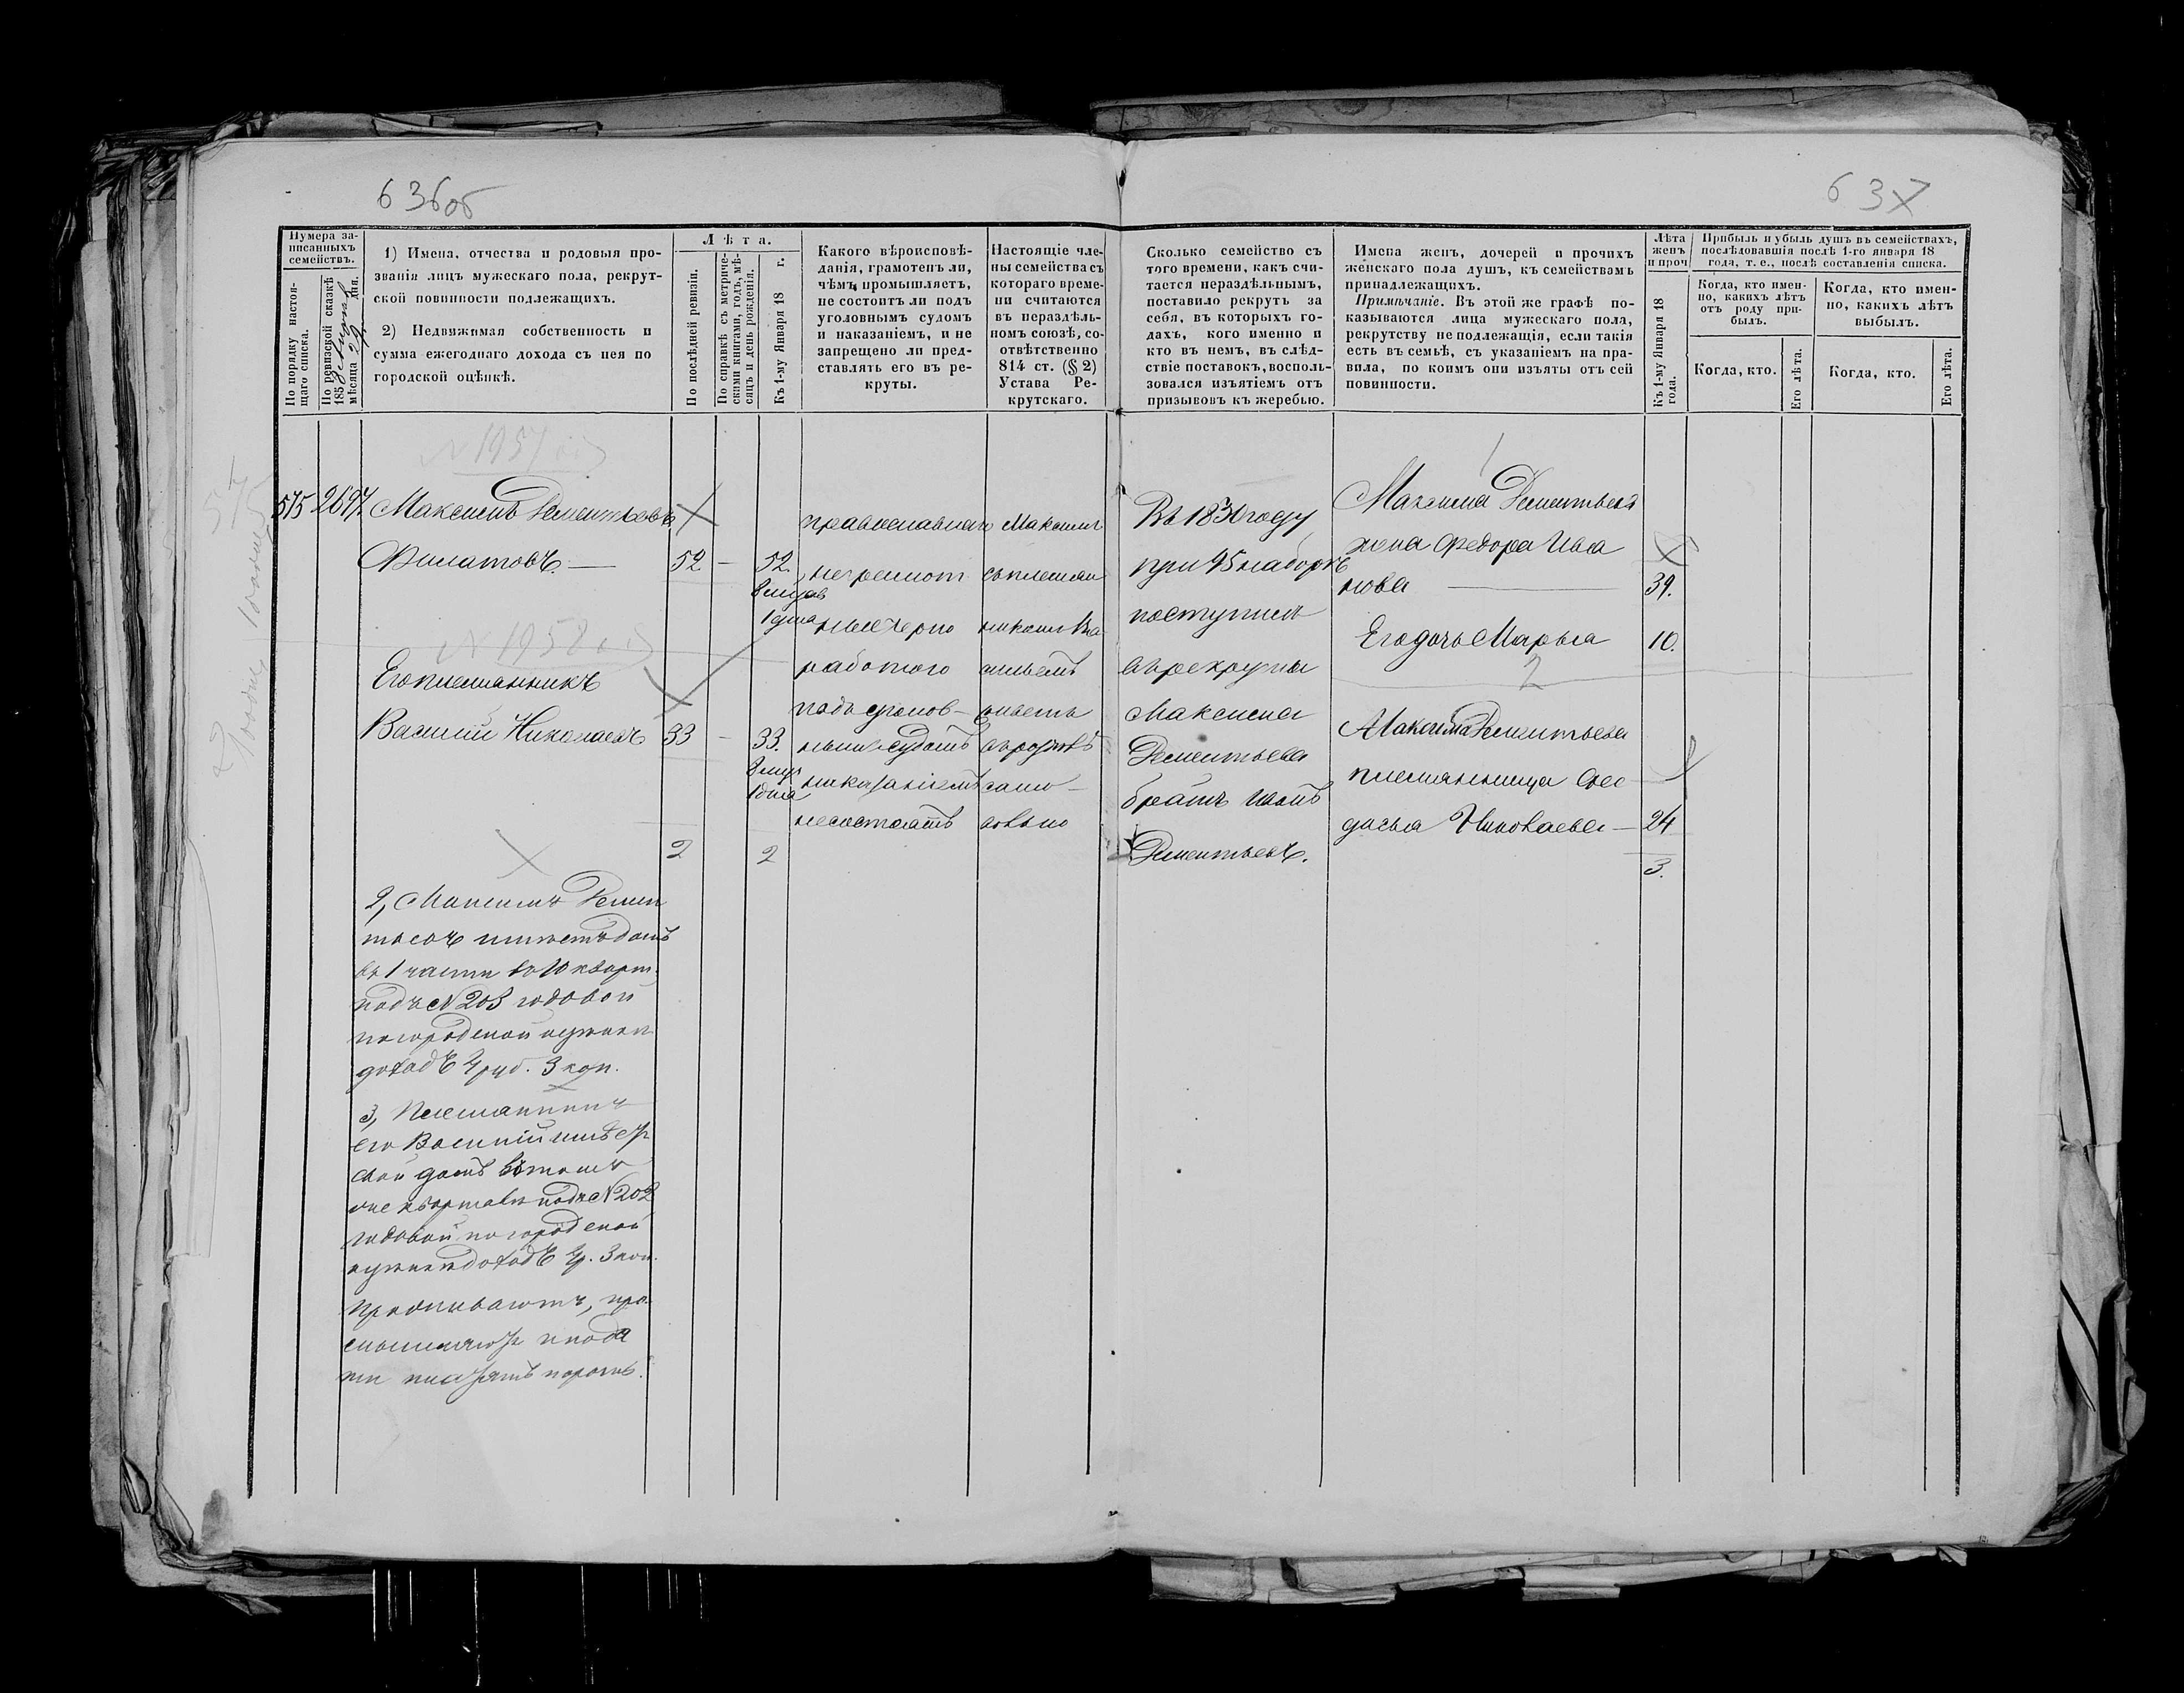 636об
637
Нумера записанныхъ семействъ.
По порядку настоящаго списка.
По ревизской сказкѣ 185 мѣсяца 29 дня.
1) Имена, отчества и родовыя прозванія лицъ мужескаго пола, рекрутской повинности подлежащихъ.
2) Недвижимая собственность и сумма ежегоднаго дохода съ нея по городской оцѣнкѣ.
Лѣта.
По послѣдней ревизіи.
По справкѣ съ метрическими книгами, годъ, мѣсяцъ и день рожденія.
Къ 1-му Января 18 г.
Какого вѣроисповѣданія, грамотенъ ли, чѣмъ промышляетъ, не состоитъ ли подъ уголовнымъ судомъ и наказаніемъ, и не запрещено ли представлять его въ рекруты.
Настоящіе члены семейства съ котораго времени считаются въ нераздѣльномъ союзѣ, соотвѣтственно 814 ст. (§ 2) Устава Рекрутскаго.
Сколько семейство съ того времени, какъ считается нераздѣльнымъ, поставило рекрутъ за себя, въ которыхъ годахъ, кого именно и кто въ немъ, въ слѣдствіе поставокъ, воспользовался изъятіемъ отъ призывовъ къ жеребью.
Имена женъ, дочерей и прочихъ женскаго пола душъ, къ семействамъ принадлежащихъ.
Примѣчаніе. Въ этой же графѣ показываются лица мужескаго пола, рекрутству не подлежащія, если такія есть въ семьѣ, съ указаніемъ на правила, по коимъ они изъяты отъ сей повинности.
Лѣта женъ и проч
Къ 1-му Января 18 года.
Прибыль и убыль душъ въ семействахъ, послѣдовавшія послѣ 1-го января 18 года, т. е., послѣ составленія списка.
Когда, кто именно, какихъ лѣтъ отъ роду прибылъ.
Когда, кто именно, какихъ лѣтъ выбылъ.
Когда, кто.
Его лѣта.
Когда, кто.
Его лѣта.
N 1957
515 2697. Максимъ Дементьевъ
Филатовъ. — 52 — 52.
8 мѣсяцов
1 дня
N 1958
Его племянникъ
Василій Николаевъ 33 — 33.
8 мѣс
1 дня
2 2
православнаго
неграмот
ные черно
работою
подъ уголов-
нымъ судомъ
и наказаніемъ
несостоятъ
Максимъ
съ племян
никомъ Ва
сильемъ
живетъ
въ родств
само-
Въ 1830 году
при 95 наборѣ
поступилъ
въ рекруты
Максима
Дементьева
братъ Иванъ
Дементьевъ.
1
Максима Дементьева
жена Федора Ива
нова — 39.
Его дочь Марья 10.
2
Максима Дементьева
племянница Фео
досья Николаева — 24
3.
2, Максимъ Демен
тьевъ имѣетъ домъ
въ 1 части въ 10 кварт.
подъ N 203 годовой
по городской оцѣнки
доходъ 4 руб. 3 коп.
3, Племянникъ
его Василій имѣетъ
свой домъ въ томъ
же кварталѣ подъ N 202
годовой по городской
оцѣнки доходъ 4 р. 3 коп.
Проживаютъ, про-
мышляютъ и пода
ти платятъ порознь.